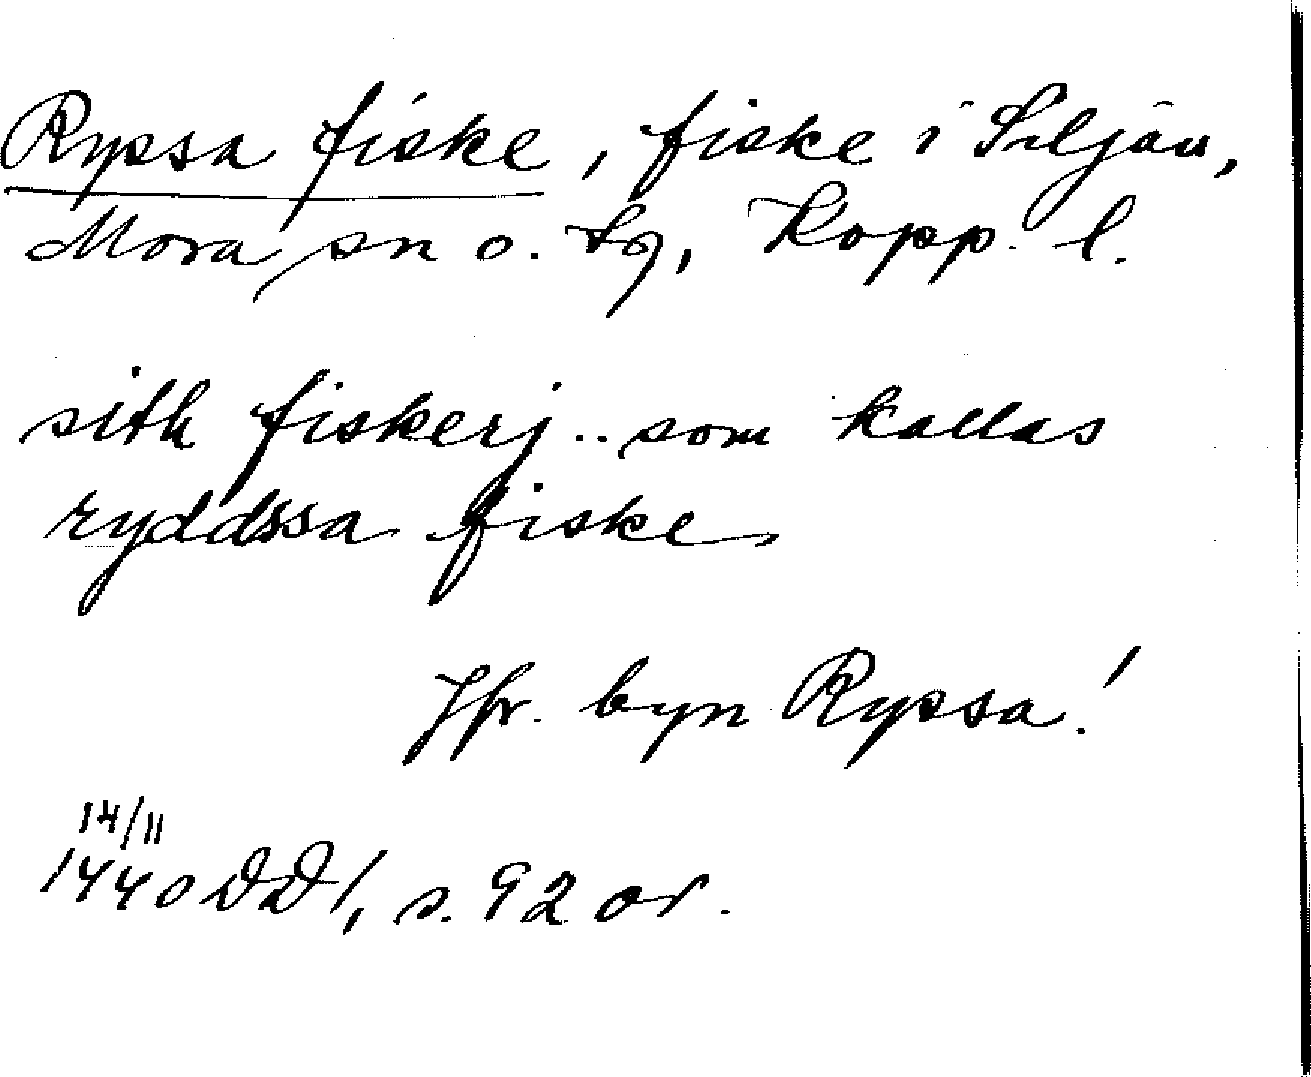 Ryssa fiske, fiske i Siljan,
Mora sn o. tg, Kopp. l.
sith fiskerj .. som kallas
ryddssa fiske
Jfr. byn Ryssa!
14/11
1440 DD 1, s. 92 or.